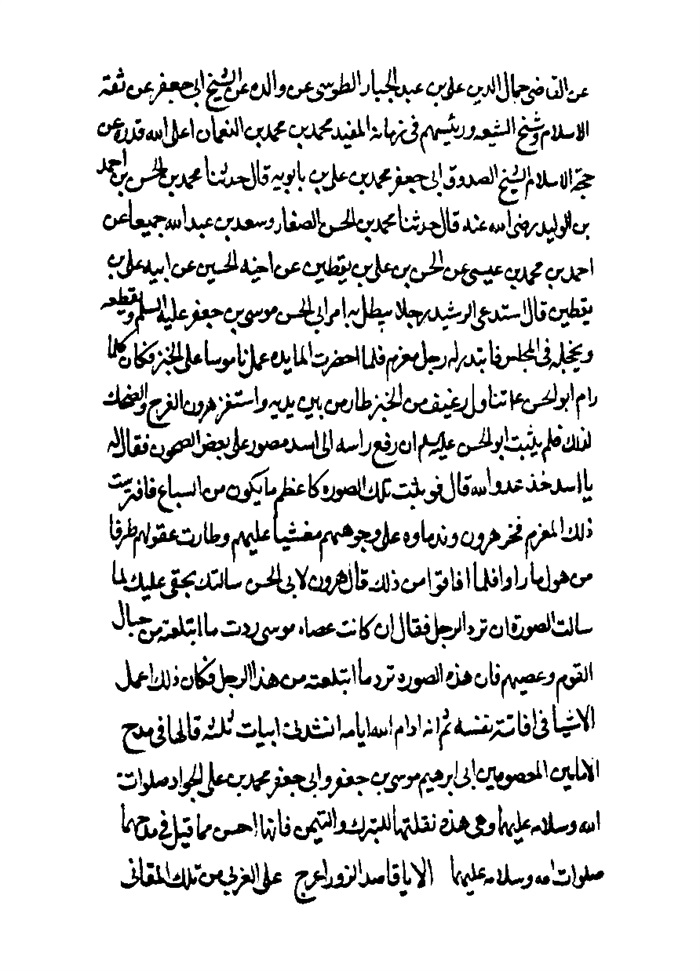 عن القاضى جمال الدين على بن عبد الجبار الطوسى عن والده عن الشيخ ابى جعفر عن ثقة
الاسلام وشيخ الشيعه ورئيسهم فى زمانه المفيد محمد بن محمد بن النعمان اعلى الله قدره عن
حجة الاسلام الشيخ الصدوق ابى جعفر محمد بن على بن بابويه قال حدثنا محمد بن الحسن بن احمد
بن الوليد رضى الله عنه قال حدثنا محمد بن الحسن الصفار وسعد بن عبد الله جميعا عن
احمد بن محمد بن عيسى عن الحسن بن على بن يقطين عن اخيه الحسين عن ابيه على بن
يقطين قال ستدعى الرشيد رجلا يبطل به امر ابى الحسن موسى بن جعفر عليه السلم ويقطعه
ويخجله فى المجلس فابتدر له رجل معزم فلما احضرت المايده عمل ناموسا على الخبز فكان كلما
رام ابو الحسن تناول رغيف من الخبز طار من بين يديه واستفز هرون الفرح والضحك
لذلك فلم يلبث ابو الحسن عليه سلم ان رفع راسه الى اسد مصور على بعض الصحون فقال له
يا اسد خذ عدو الله قال فوثبت تلك الصوره كاعظم ما يكون من السباع فافترست
ذلك المعزم فخر هرون وندماوه على وجوههم مغشيا عليهم وطارت عقولهم طرقا
من هول ما راوا فلما افاقوا من ذلك قال هرون لابى الحسن سالتك بحقى عليك لما
سالت الصورة ان ترد الرجل فقال ان كانت عصاه موسى ردت ما ابتلعته من حبال
القوم وعصيهم فان هذه الصوره ترد ما ابتلعته من هذا الرجل فكان ذلك اعمل
الاشيا فى افاتة نفسه ثم انه ادام الله ايامه انشدنى ابيات ثلثه قالها فى مدح
الامامين المعصومين ابى ابرهيم موسى بن جعفر وابى جعفر محمد بن على الجواد صلوات
الله وسلامه عليهما وهى هذه نقلتها للتبرك والتيمن فانها احسن مما قيل فى مدحهما
صلوات الله وسلامه عليهما الا يا قاصد الزوراء عرج على الغربى من تلك المغانى